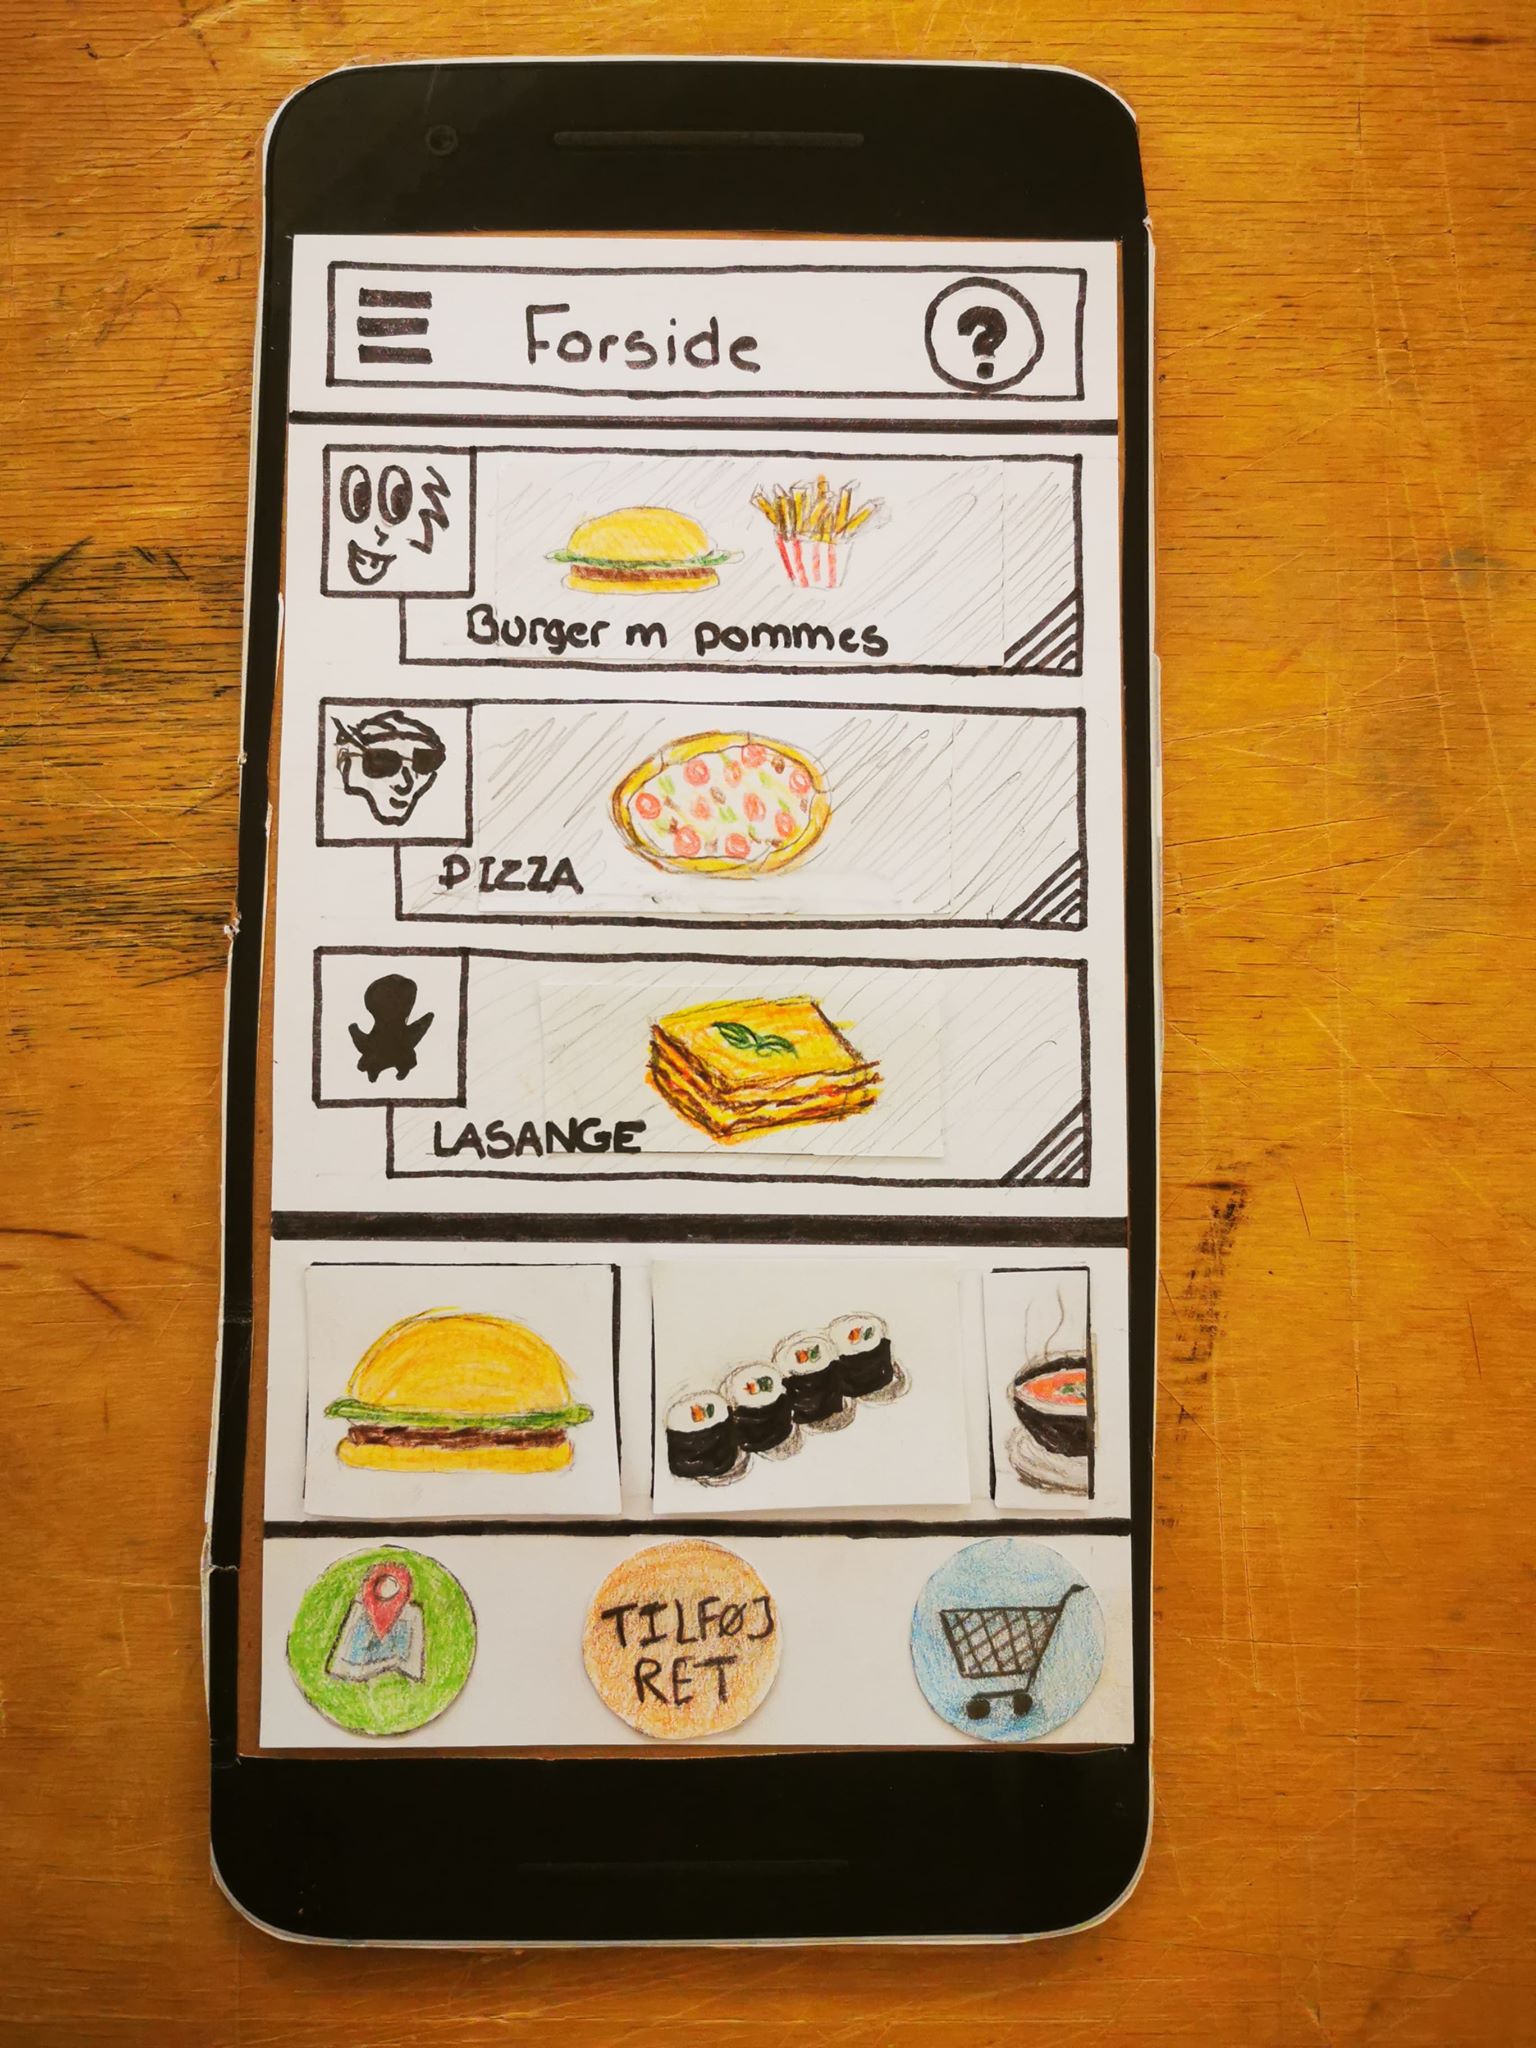 Forside
?
Burger m pommes
PIZZA
LASANGE
TILFØJ
RET